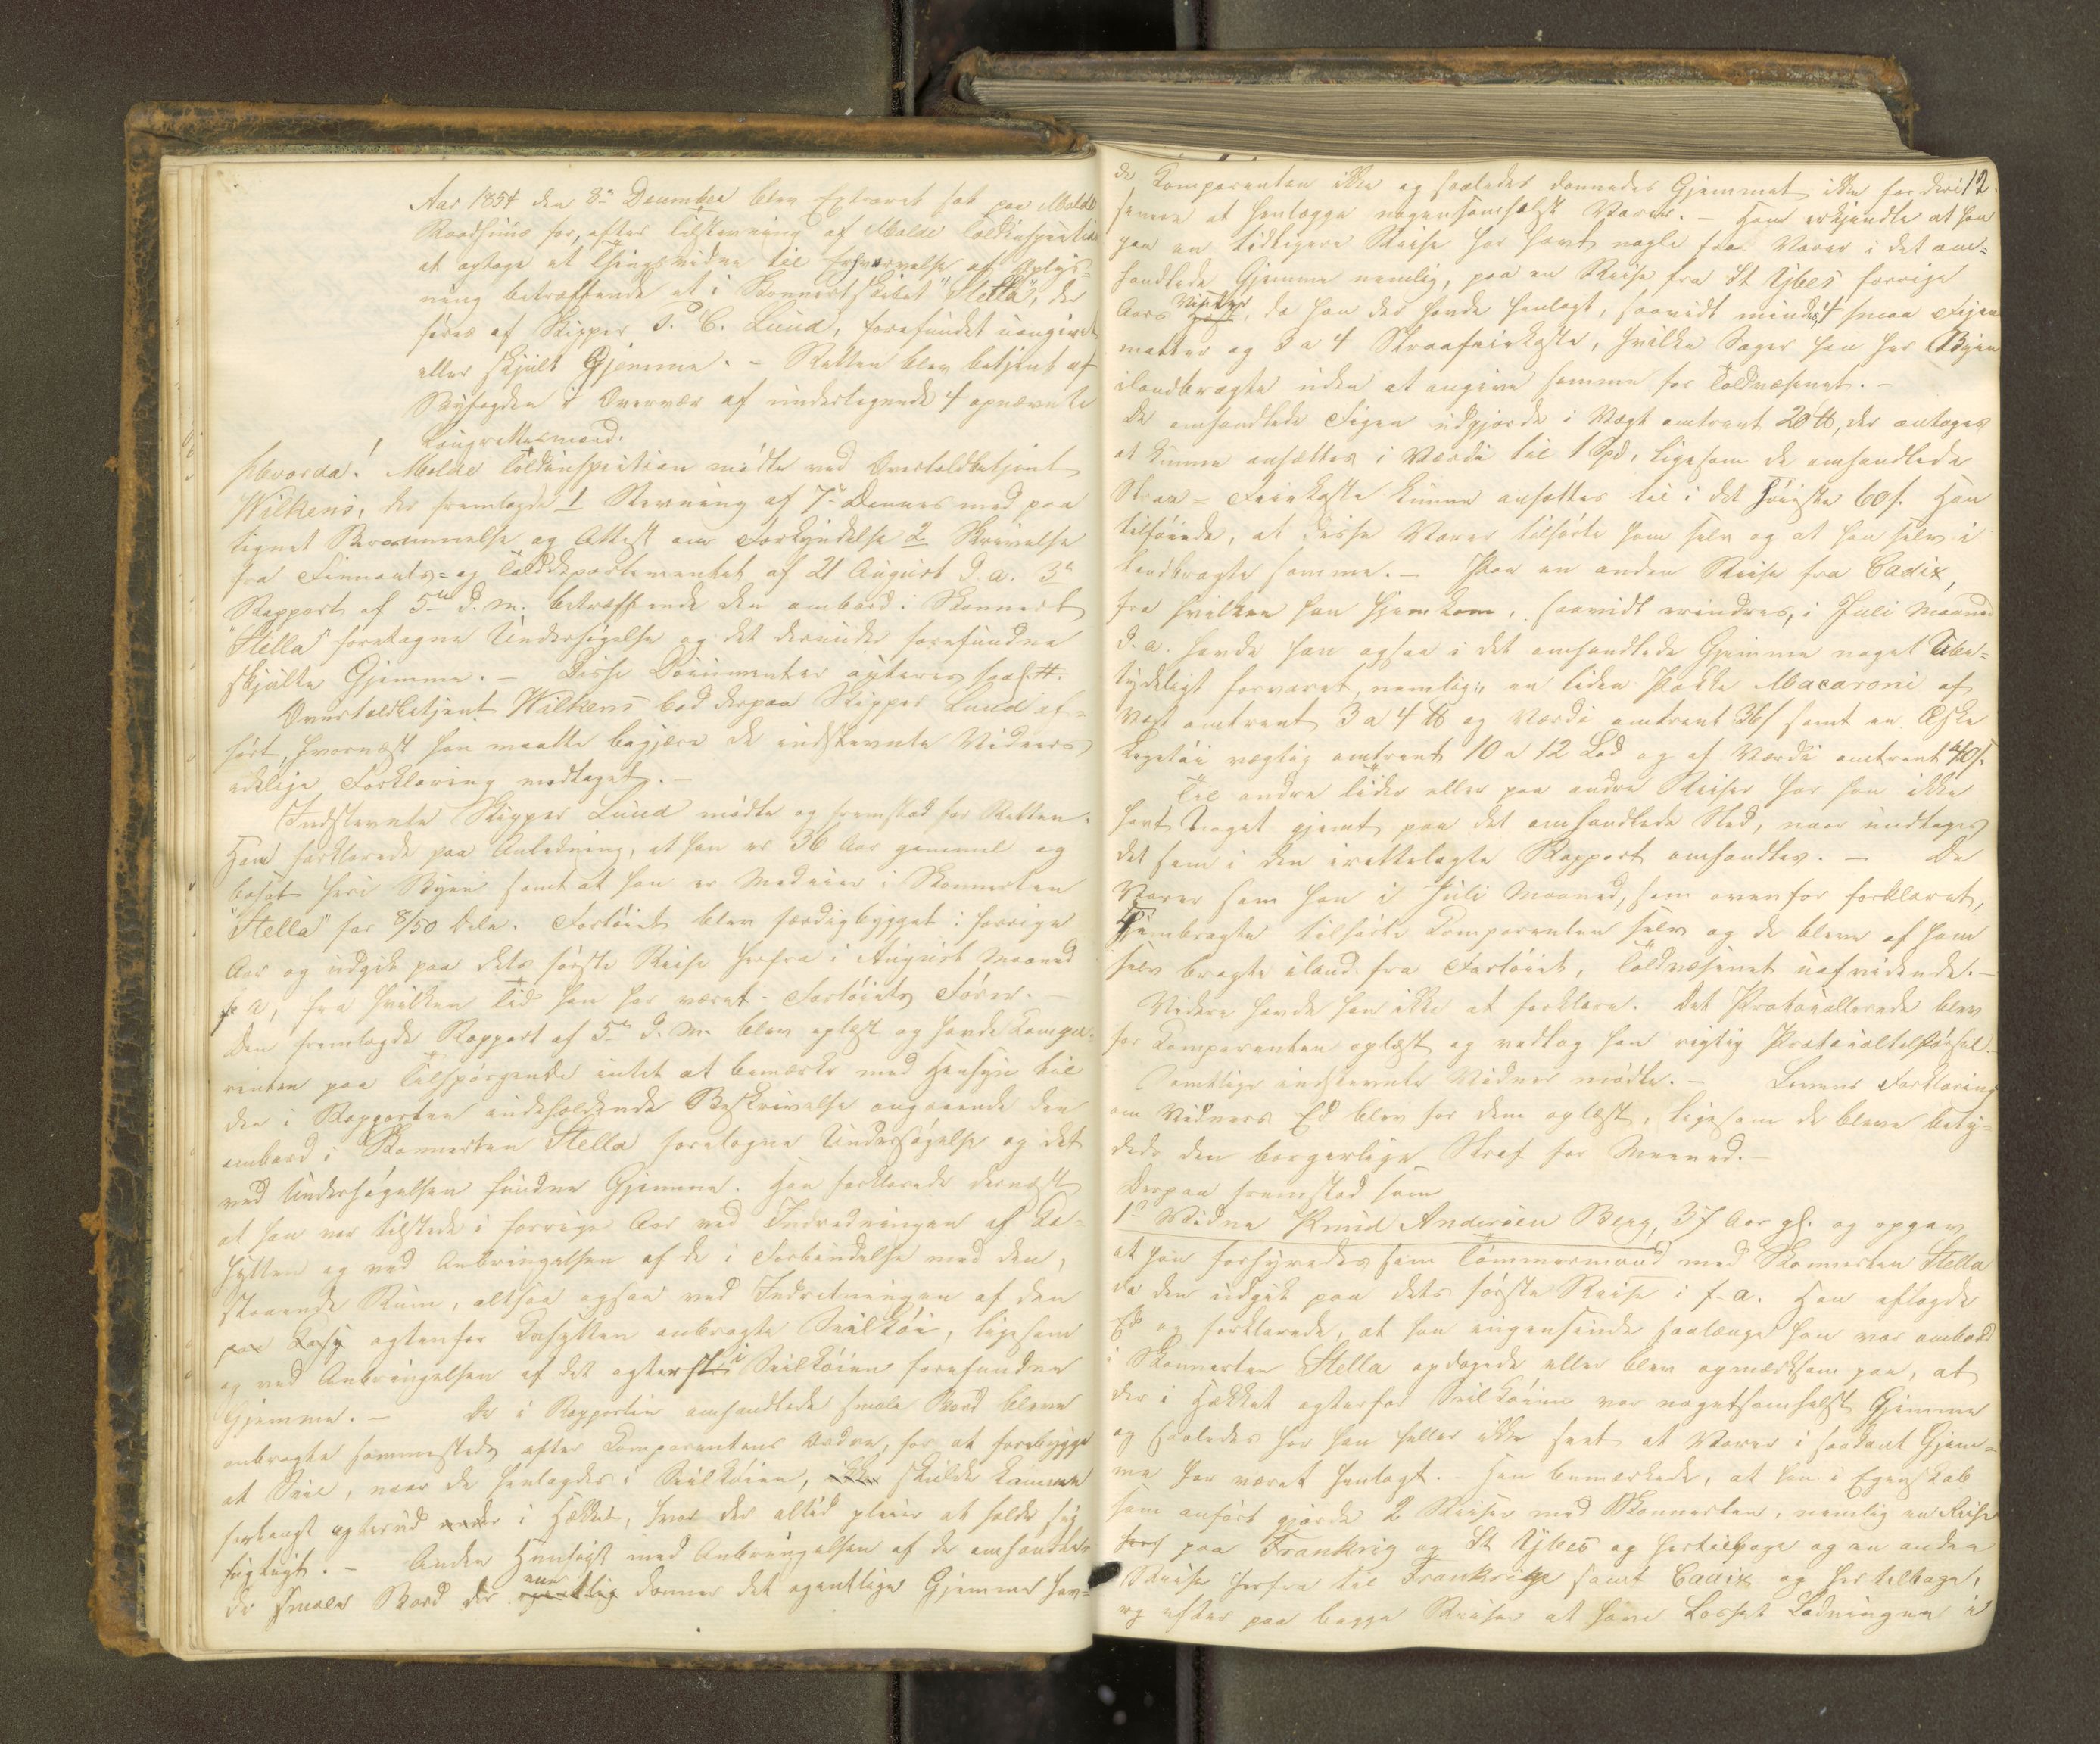 Aar 1854 den 8de December blev Extraret sat paa Molde
Raadhuus for, efter Tilstevning af Molde Toldinspection
at optage et Thingsvidne til Erhvervelse af Oplys-
ning betræffende et i Skonnertskibet "Stella", der
føres af Skipper P. C. Lund, forefundet uangivet
eller skjult Gjemme. – Retten blev betjent af
Byfogden i Overvær af undertegnede 4 opnævnte
Laugrettesmænd.
Hvorda! Molde Toldinspection mødte ved Overtoldbetjent
Wilkens, der fremlagde 1 Stevning af 7de Dennes med paa
tegnet Berammelse og Attest om Forkyndelse 2 Skrivelse
fra Finants- og Tolddepartementet af 21 August d. a. 3de
Rapport af 5te d. M. betræffende den ombord i Skonnert
"Stella" foretagne Undersøgelse og det derunder forefundne
skjulte Gjemme. – Disse Documenter acteres saal. #.
Overtoldbetjent Wilkens bad derpaa Skipper Lund af-
hørt, hvornæst han maatte begjære de indstevnte Vidners
edelige Forklaring modtaget. –
Indstevnte Skipper Lund mødte og fremstod for Retten.
Han forklarede paa Anledning, at han er 36 Aar gammel og
bosat heri Byen samt at han er Medeier i Skonnerten
"Stella" for 8/50 Dele. Fartøiet blev færdigbygget i forrige
Aar og udgik paa dets første Reise herfra i August Maaned
f. a., fra hvilken Tid han har været Fartøiets Fører. –
Den fremlagde Rapport af 5te d. M. blev oplæst og havde Compa-
renten paa Tilspørgende intet at bemærke med Hensyn til
den i Rapporten indeholdende Beskrivelse angaaende den
ombord i Skonnerten Stella foretagne Undersøgelse og det
ved Undersøgelsen fundne Gjemme. Han forklarede dernæst
at han var tilstede i forrige Aar ved Indredningen af Ca-
hytten og ved Anbringelsen af de i Forbindelse med den,
staaende Rum, altsaa ogsaa ved Indretningen af den
agtenfor Cahytten anbragte Seilkøie, ligesom
og ved Anbringelsen af det agterst i Seilkøien forefundne
Gjemme. – De i Rapporten omhandlede smale Bord bleve
anbragte sammesteds efter Comparentens Ordre, for at forebygge
at Seil, naar de henlagdes i Seilkøien, skulde komme
forlangt agterud i Hækken, hvor der altid pleier at holde sig
fugtigt. – Anden Hensigt med Anbringelsen af de omhandle-
de smale Bord der danner det egentlige Gjemme hav-
12.
de Comparenten ikke og saaledes dannedes Gjemmet ikke for deri
senere at henlægge nogensomhelst Varer. – Han erkjendte at han
paa en tidligere Reise har havt nogle faa Varer i det om-
handlede Gjemme nemlig, paa en Reise fra St Ybes forrige
Aars Vinter, da han der havde henlagt, saavidt mindes, 4 smaa Figen
matter og 3 a 4 Straafeiekoste, hvilke Sager han her i Byen
ilandbragte uden at angive samme for Toldvæsenet. –
De omhandlede Figen udgjorde i Vægt omtrent 20 ℔, der antages
at kunne ansættes i Værdi til 1 Spd, ligesom de omhandlede
Straa-Feiekoste kunne ansættes til i det høieste 60 s. Han
tilføiede, at disse Varer tilhørte ham selv og at han selv i
landbragte samme. – Paa en anden Reise fra Cadix,
fra hvilken han hjemkom, saavidt erindres, i Juli Maaned
d. a. havde han ogsaa i det omhandlede Gjemme noget Ube-
tydeligt forvaret, nemlig: en liden Pakke Macaroni af
Vægt omtrent 3 a 4 ℔ og Værdi omtrent 36 s samt en Æske
Legetøi vægtig omtrent 10 a 12 Lod og af Værdi omtrent 40 s.
Til andre Tider eller paa andre Reiser har han ikke
havt Noget gjemt paa det omhandlede Sted, naar undtages
det som i den irettelagte Rapport omhandles. – De
Varer som han i Juli Maaned, som ovenfor forklaret,
hjembragte tilhørte Comparenten selv og de bleve af ham
selv bragte iland fra Fartøiet, Toldvæsenet uafvidende. –
Videre havde han ikke at forklare. Det Protocollerede blev
for Comparenten oplæst og vedtog han rigtig Protocoltilførsel. –
Samtlige indstevnte Vidner mødte. – Lovens Forklaring
om Vidners Ed blev for dem oplæst, ligesom de bleve bety-
dede den borgerlige Straf for Meened. –
Derpaa fremstod som
1ste Vidne Knud Andersen Berg, 37 Aar gl. og opgav
at han forhyredes som Tømmermand med Skonnerten Stella
da den udgik paa dets første Reise i f. a. Han aflagde
Ed og forklarede, at han ingensinde saalænge han var ombord
i Skonnerten Stella opdagede eller blev opmærksom paa, at
der i Hækket agterfor Seilkøien var nogetsomhelst Gjemme
og saaledes har han heller ikke seet at Varer i saadant Gjem-
me har været henlagt. Han bemærkede, at han i Egenskab
som anført gjorde 2 Reiser med Skonnerten, nemlig en Reise
paa Frankrig og St Ybes og hertilbage og en anden
Reise herfra til Frankrige samt Cadix og her tilbage,
og efter paa begge Reiser at have losset Ladningen i